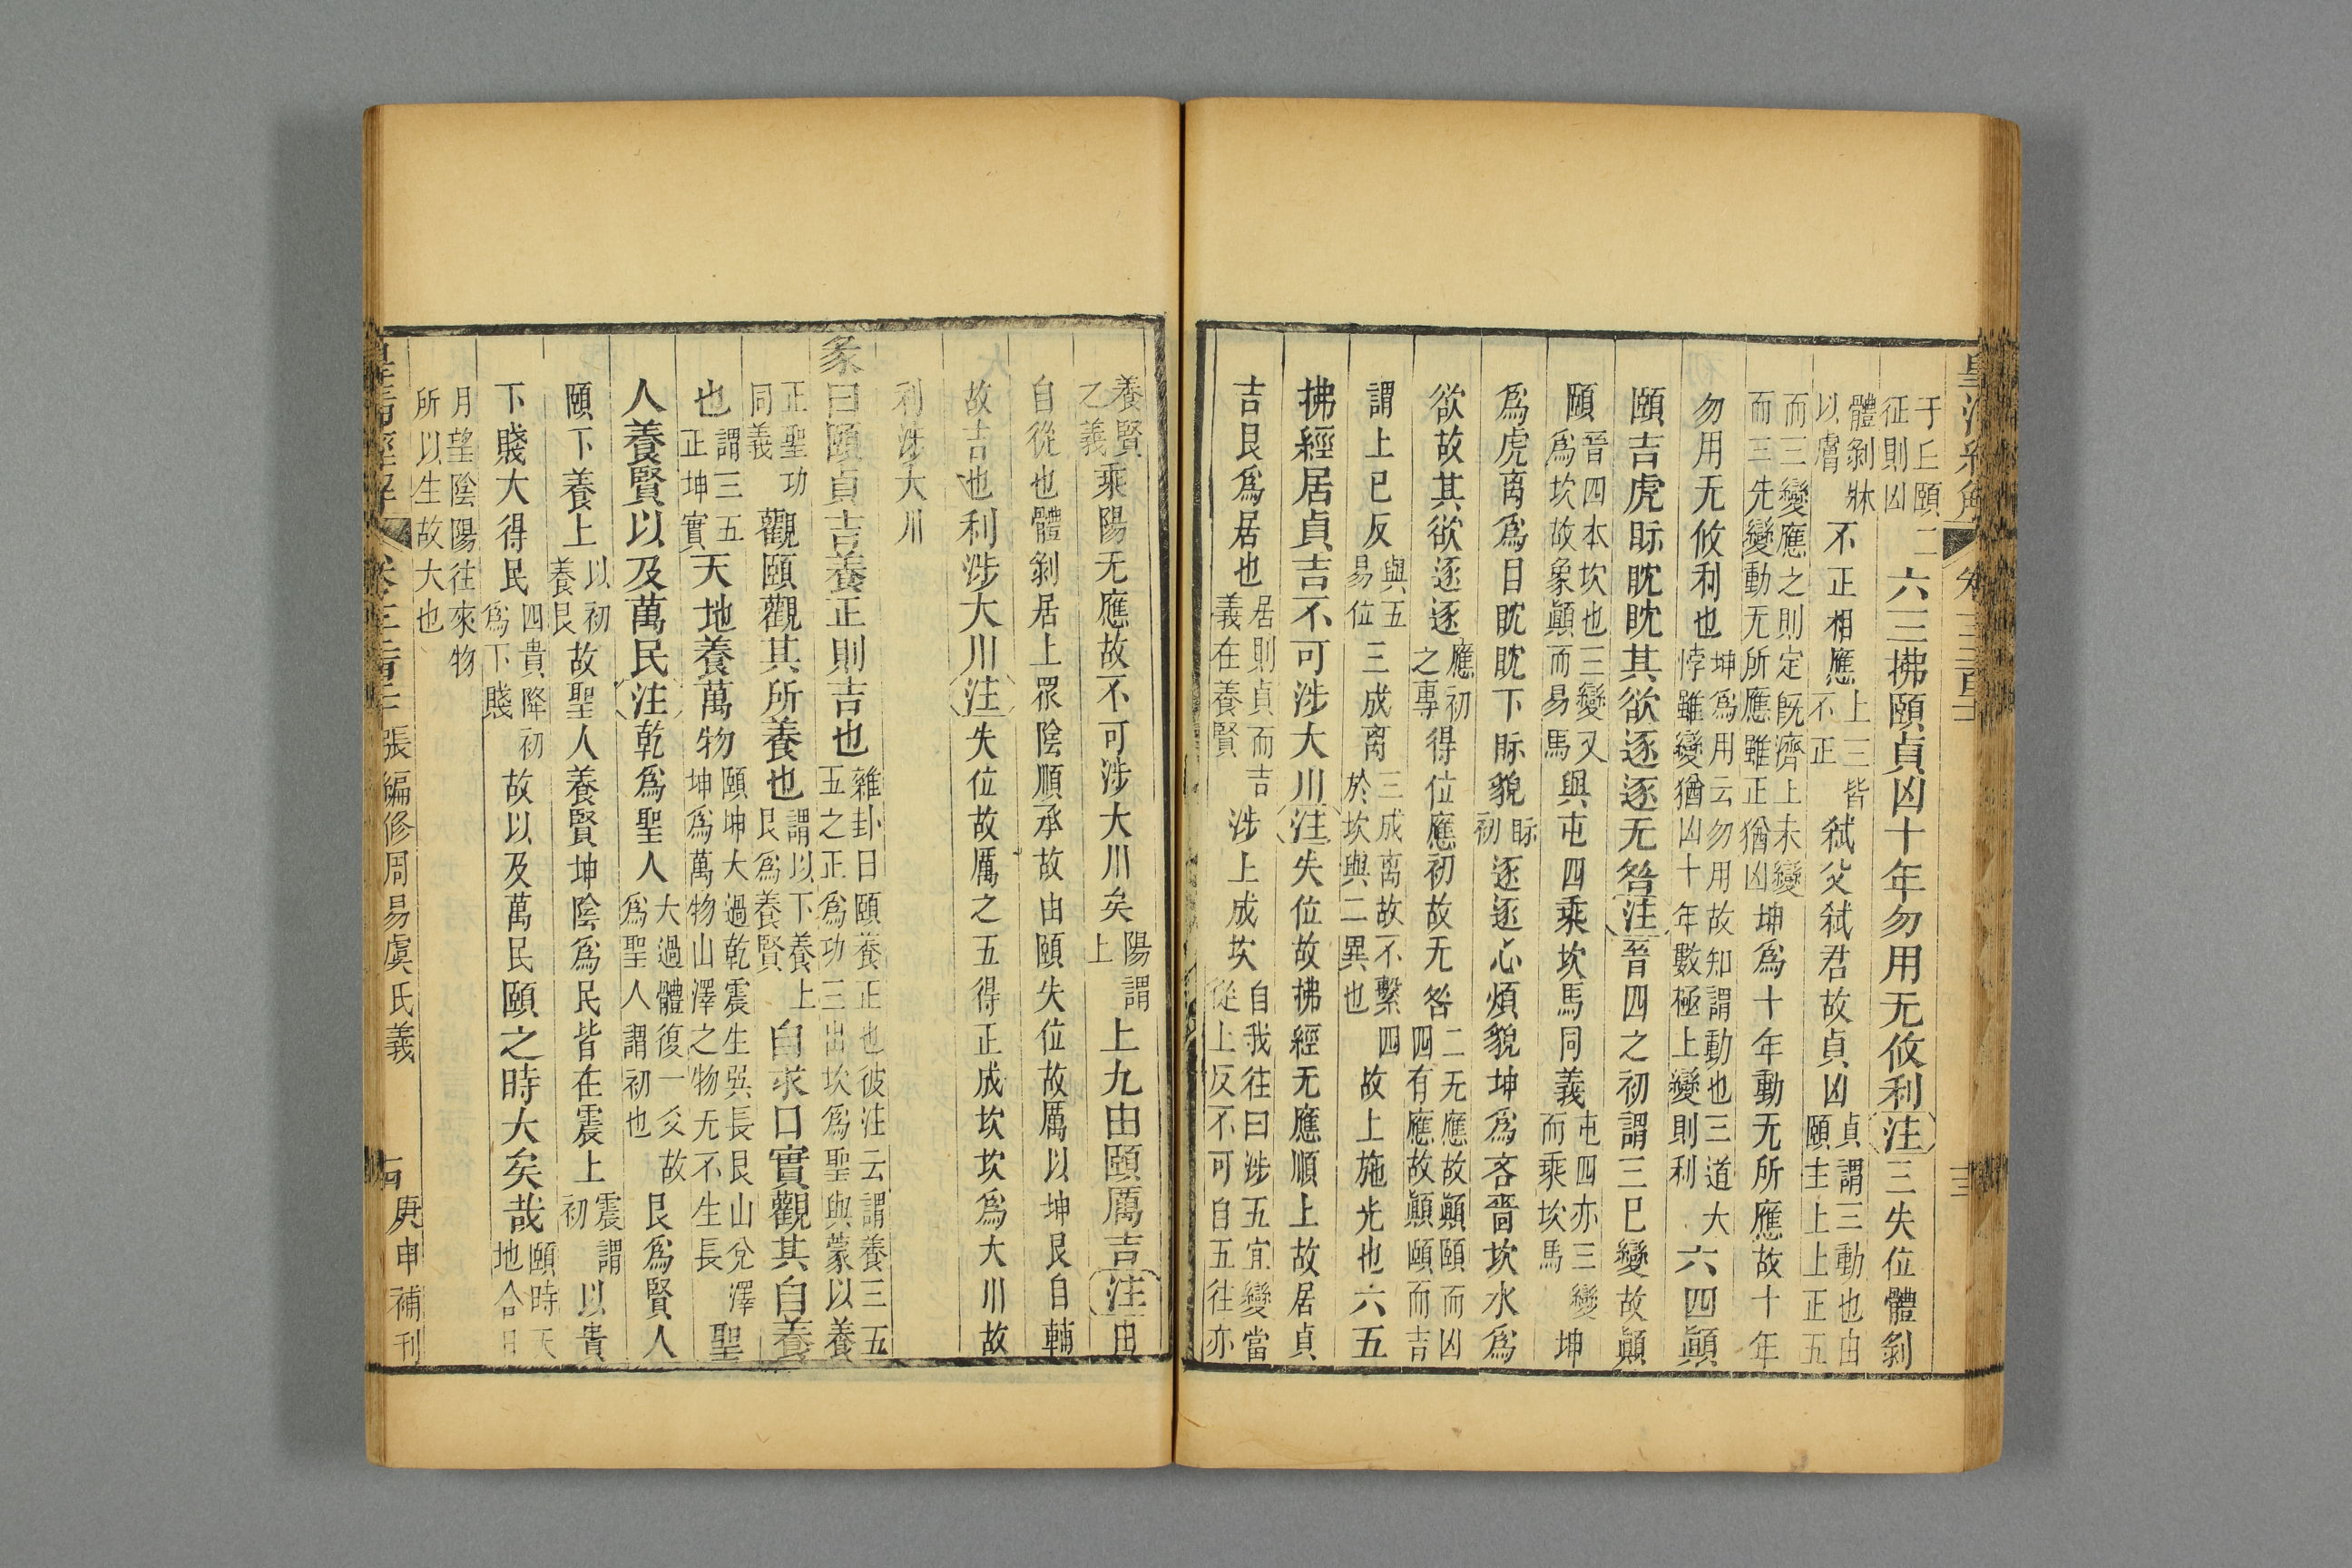 于丘頤二征則凶六三拂頤貞凶十年勿用无攸利注三失位體剝
體剝牀以膚不正相應上三皆不正弑父弑君故貞凶貞謂三動也由頤主上上正五
而三變應之則定既濟上未變而三先變動无所應雖正猶凶坤爲十年動无所應故十年
勿用无攸利也坤爲用云勿用故知謂動也三道大悖雖變猶凶十年數極上變則利六四顛
頤吉虎眎眈眈其欲逐逐无咎注晉四之初謂三巳變故顛
頤晉四本坎也三變又爲坎故象顛而易馬與屯四乘坎馬同義屯四亦三變而乘坎馬坤
爲虎离爲目眈眈下眎貌眎初逐逐心煩貌坤爲吝嗇坎水爲
欲故其欲逐逐應初之專得位應初故无咎二无應故顛頤而凶四有應故顛頤而吉
謂上巳反與五易位三成离三成离故不繫四於坎與二異也故上施光也六五
拂經居貞吉不可涉大川注失位故拂經无應順上故居貞
吉艮爲居也居則貞而吉義在養賢涉上成坎自我往曰涉五宜變當從上反不可自五往亦
養賢之義乘陽无應故不可涉大川矣陽謂上上九由頤厲吉注由
自從也體剝居上眾陰順承故由頤失位故厲以坤艮自輔
故吉也利涉大川注失位故厲之五得正成坎坎爲大川故
利涉大川
彖曰頤貞吉養正則吉也雜卦曰頤養正也彼注云謂養三五五之正爲功三出坎爲聖與蒙以養
正聖功同義觀頤觀其所養也謂以下養上艮爲養賢自求口實觀其自養
也謂三五正坤實天地養萬物頤坤大過乾震生巽長艮山兌澤坤爲萬物山澤之物无不生長聖
人養賢以及萬民注乾爲聖人大過體復一爻故爲聖人謂初也艮爲賢人
頤下養上以初養艮故聖人養賢坤陰爲民皆在震上震謂初以貴
下賤大得民四貴降初爲下賤故以及萬民頤之時大矣哉頤時天地合日
月望陰陽往來物所以生故大也
張編修周易虞氏義
庚申補刊